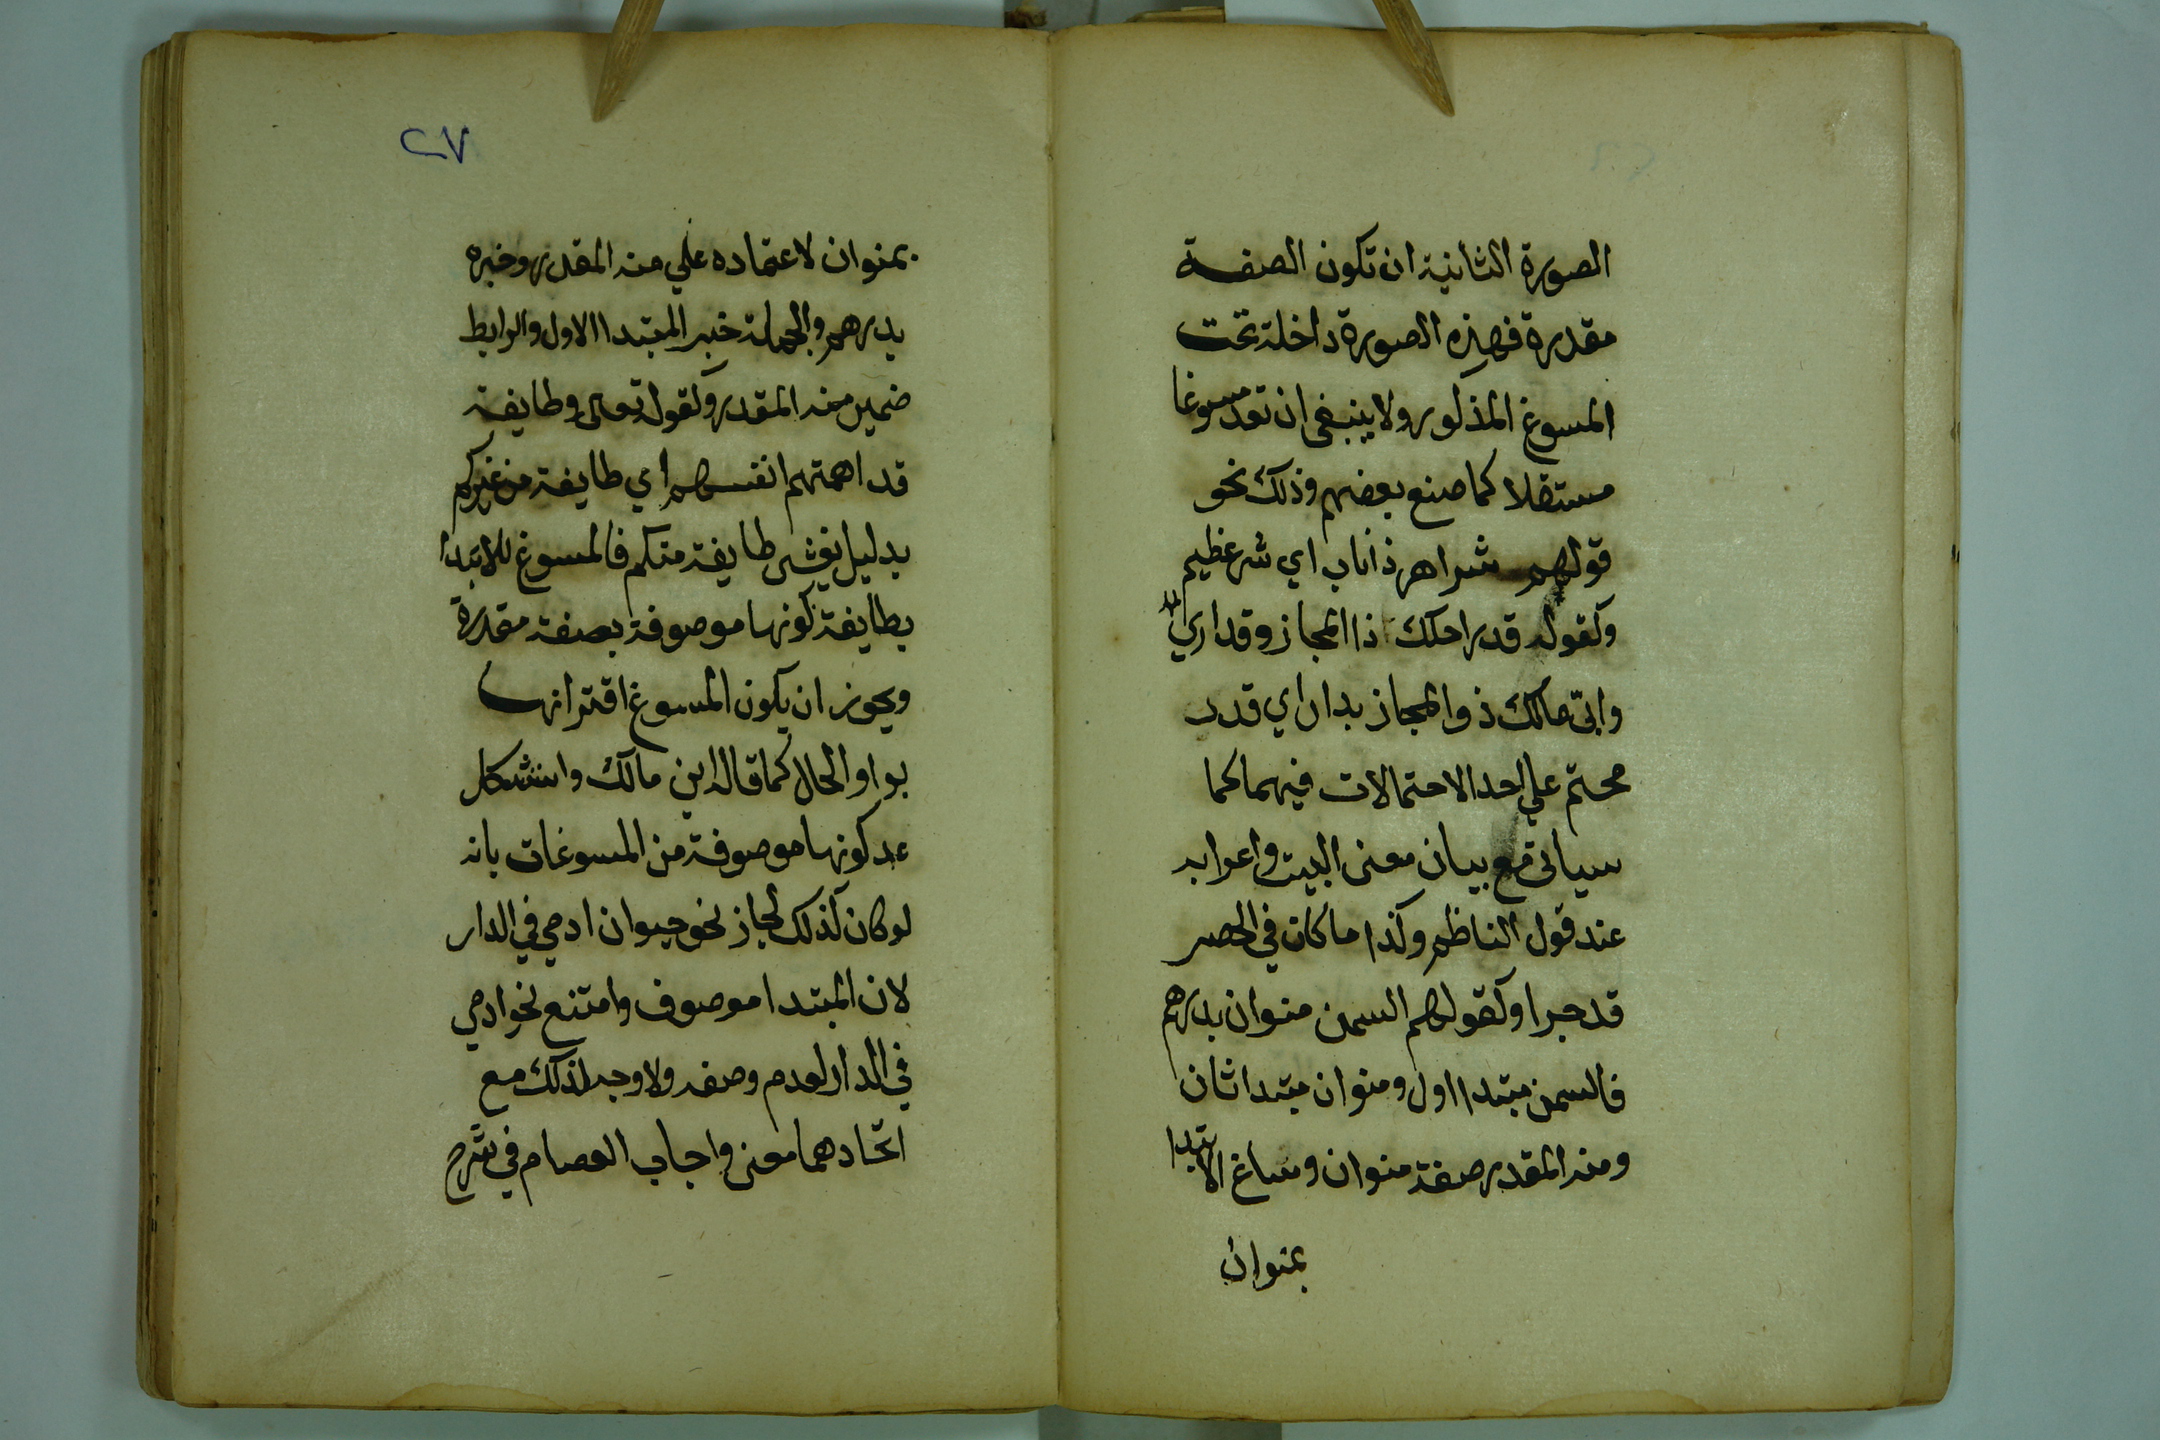 الصورة الثانية ان تكون الصفة
مقدرة فهذه الصورة داخلة تحت
المسوغ المذكور ولا ينبغي ان تعد مسوغا
مستقلا كما صنع بعضهم وذلك نحو
قولهم شر اهر ذا ناب اي شر عظيم
وكقوله قدر احلك ذا المجاز وقد اري
وابيّ مالك ذو المجاز بدار اي قدر
محتم علي احد الاحتمالات فيهما كما
سياتي مع بيان معنى البيت واعرابه
عند قول الناظم وكذا ما كان في الحصر
قد جرا وكقولهم السمن منوان بدرهم
فالسمن مبتدا اول ومنوان مبتدا ثان
ومنه المقدر صفة منوان وساغ الابتدا
بمنوان
٢٧
بمنوان لاعتماده علي منه المقدر وخبره
بدرهم والجملة خبر المبتدا الاول والرابط
ضمير منه المقدر وكقوله تعالى وطايفة
قد اهمتهم انفسهم اي طايفة من غيركم
بدليل يغشى طايفة منكم فالمسوغ للابتدا
بطايفة كونها موصوفة بصفة مقدرة
ويجوز ان يكون المسوغ اقترانها
بواو الحال كما قاله ابن مالك واستشكل
عد كونها موصوفة من المسوغات بانه
لو كان كذلك لجاز نحو حيوان ادمي في الدار
لان المبتدا موصوف وامتنع نحو ادمي
في الدار لعدم وصفه ولا وجه لذلك مع
اتحادهما معنى واجاب العصام في شرح